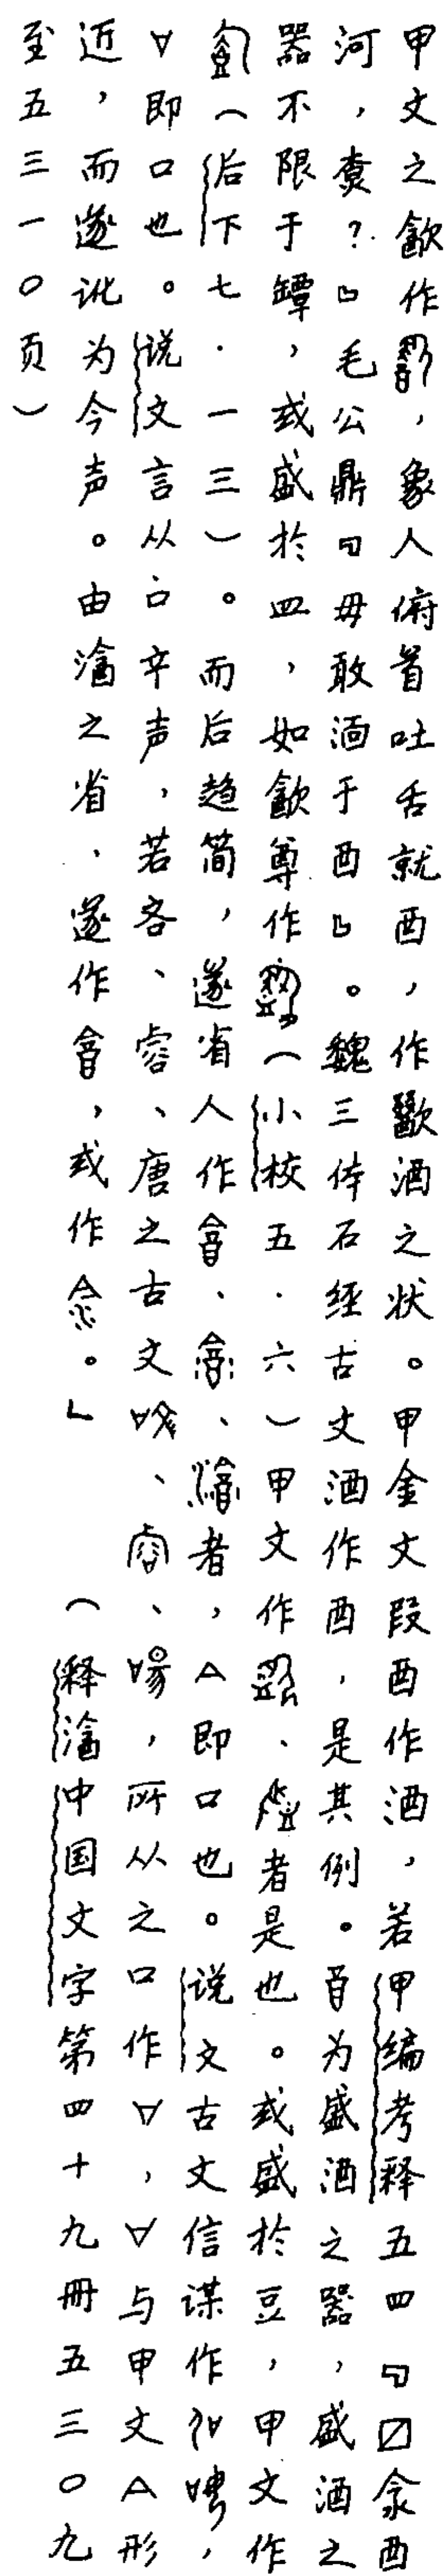 甲文之歙作，象人俯首吐舌就酉，作歠酒之状。甲金文段酉作酒，若甲编考释五四『〼酓酉
河，賁？』毛公鼎『毋敢湎于酉』。魏三体石经古文酒作酉，是其例。酉为盛酒之器，盛酒之
器不限于罈，或盛於皿，如歙尊作（小校五·六）甲文作、者是也。或盛於豆，甲文作
（后下七·一三）。而后趋简，遂省人作、、者，A即口也。说文古文信谋作，
∀即口也。说文言从口䇂声，若吝、睿、唐之古文、、，所从之口作∀，∀与甲文A形
近，而遂讹为今声。由之省，遂作，或作。」（释中国文字第四十九册五三〇九
至五三一〇页）